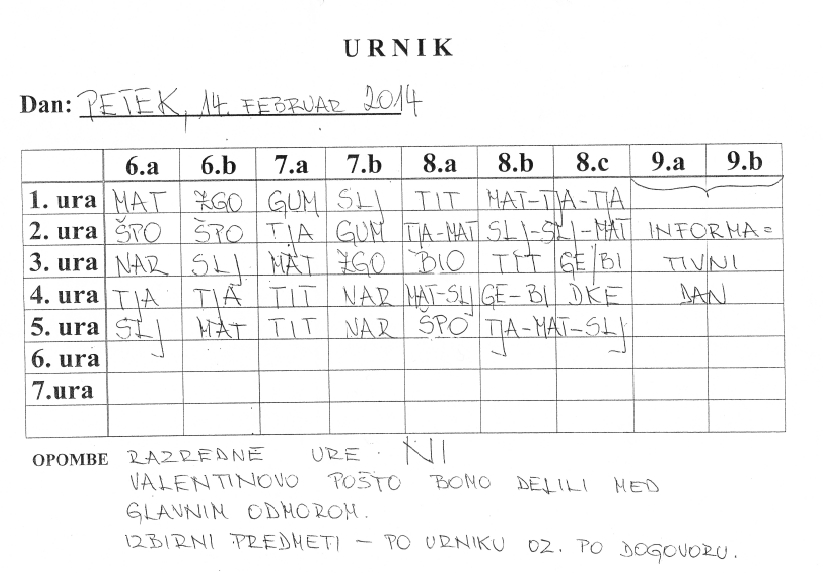 URNIK
Dan: PETEK, 14. FEBRUAR 2014
6.a 6.b 7.a 7.b 8.a 8.b 8.c 9.a 9.b
1. ura MAT ZGO GUM SLJ TIT MAT-TJA-TJA
2. ura ŠPO ŠPO TJA GUM TJA-MAT SLJ-SLJ-MAT INFORMA=
3. ura NAR SLJ MAT ZGO BIO TIT GE/BI TIVNI
4. ura TJA TJA TIT NAR MAT-SLJ GE-BI DKE DAN
5. ura SLJ MAT TIT NAR ŠPO TJA-MAT-SLJ
6. ura
7.ura
OPOMBE RAZREDNE URE NI
VALENTINOVO POŠTO BOMO DELILI MED
GLAVNIM ODMOROM.
IZBIRNI PREDMETI - PO URNIKU OZ. PO DOGOVORU.